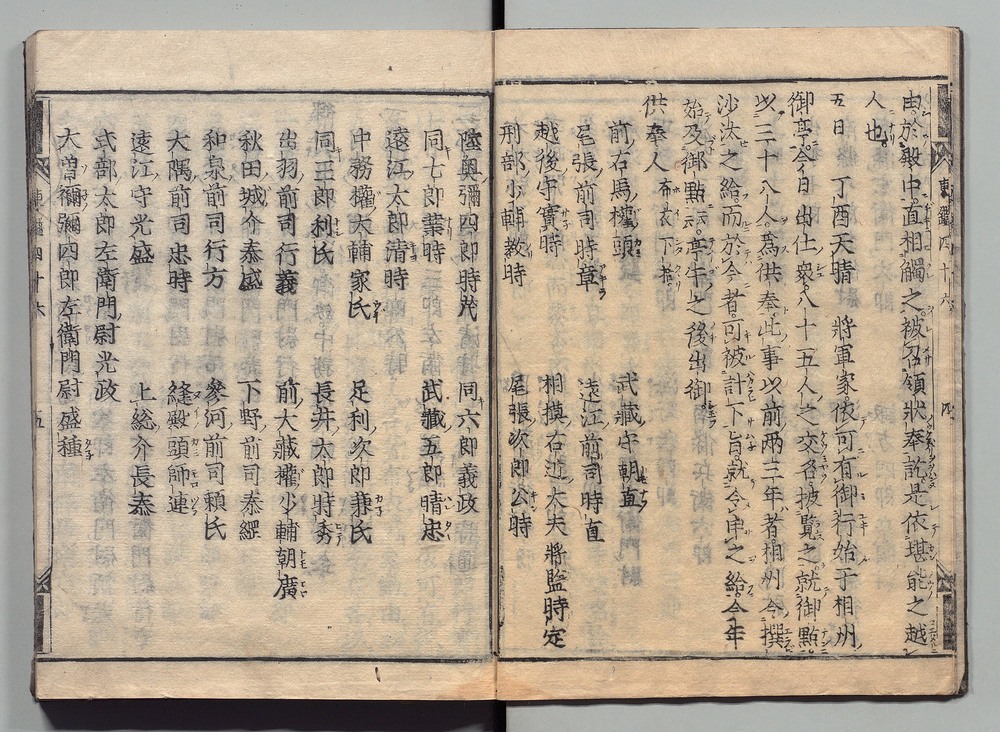 由於殿中直相觸之被召領狀奉訖是依堪能之越
人也
五日 丁酉天晴 將軍家依可有御行始于相州
御亭今日出仕衆八十五人之交名披覧之就御點
以三十八人爲供奉此事以前兩三年者相州令撰
沙汰之給而於今者可被計下旨就令申之給今年
始及御點云云亭午之後出御
供奉人 布衣下括
前右馬權頭 武藏守朝直
尾張前司時章 遠江前司時直
越後守實時 相摸右近大夫將監時定
刑部少輔教時 尾張次郎公時
東鑑四十六 四
陸奥彌四郎時茂 同六郎義政
同七郎業時 武藏五郎時忠
遠江太郎清時
中務權大輔家氏 足利次郎兼氏
同三郎利氏 長井太郎時秀
出羽前司行義 前大藏權少輔朝廣
秋田城介泰盛 下野前司泰經
和泉前司行方 參河前司頼氏
大隅前司忠時 縫殿頭師連
遠江守光盛 上総介長泰
式部太郎左衛門尉光政
大曽禰彌四郎左衛門尉盛種
東鑑四十六 五